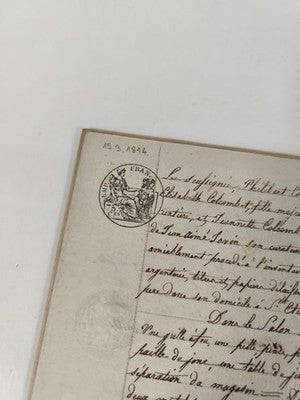 15.3.1814
EMP FRAN
Les soussignés, Philibert Co
Elisabeth Colcombet, fille maj
rentière, et Jeannette Colcomb
de Jean Aimé son curateur
amiablement procédé à l'inventai
argenterie, titres et papiers délaiss
père dans son domicile à St Et
Dans le Salon
Une grille à feu, une pelle,
paille de jonc, une table de j
séparation de magasin
deux